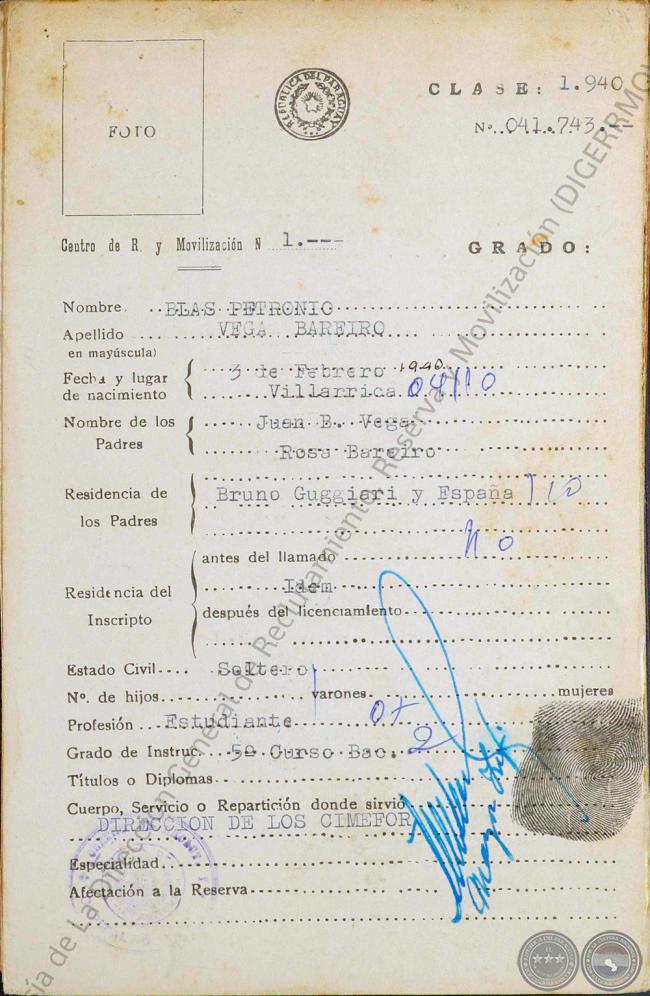 CLASE: 1.940
FOTO
REPUBLICA DEL PARAGUAY
Nº. 041.743.--
Centro de R. y Movilización N 1.---
GRADO:
Nombre BLAS PETRONIO
Apellido VEGA BAREIRO
en mayúscula)
Fecha y lugar de nacimiento 3 de Febrero 1940
Villarrica 04110
Nombre de los Padres Juan E. Vega
Rosa Bareiro
Residencia de los Padres Bruno Guggiari y España 110
No
Residencia del Inscripto antes del llamado
Idem
después del licenciamiento
Estado Civil Soltero
Nº. de hijos varones mujeres
Profesión Estudiante 07
Grado de Instruc. 5º Curso Bac. 2
Títulos o Diplomas
Cuerpo, Servicio o Repartición donde sirvió
DIRECCION DE LOS CIMEFOR
Especialidad
Afectación a la Reserva
de La Dirección General de Reclutamiento, Reserva y Movilización (DIGERRMOV